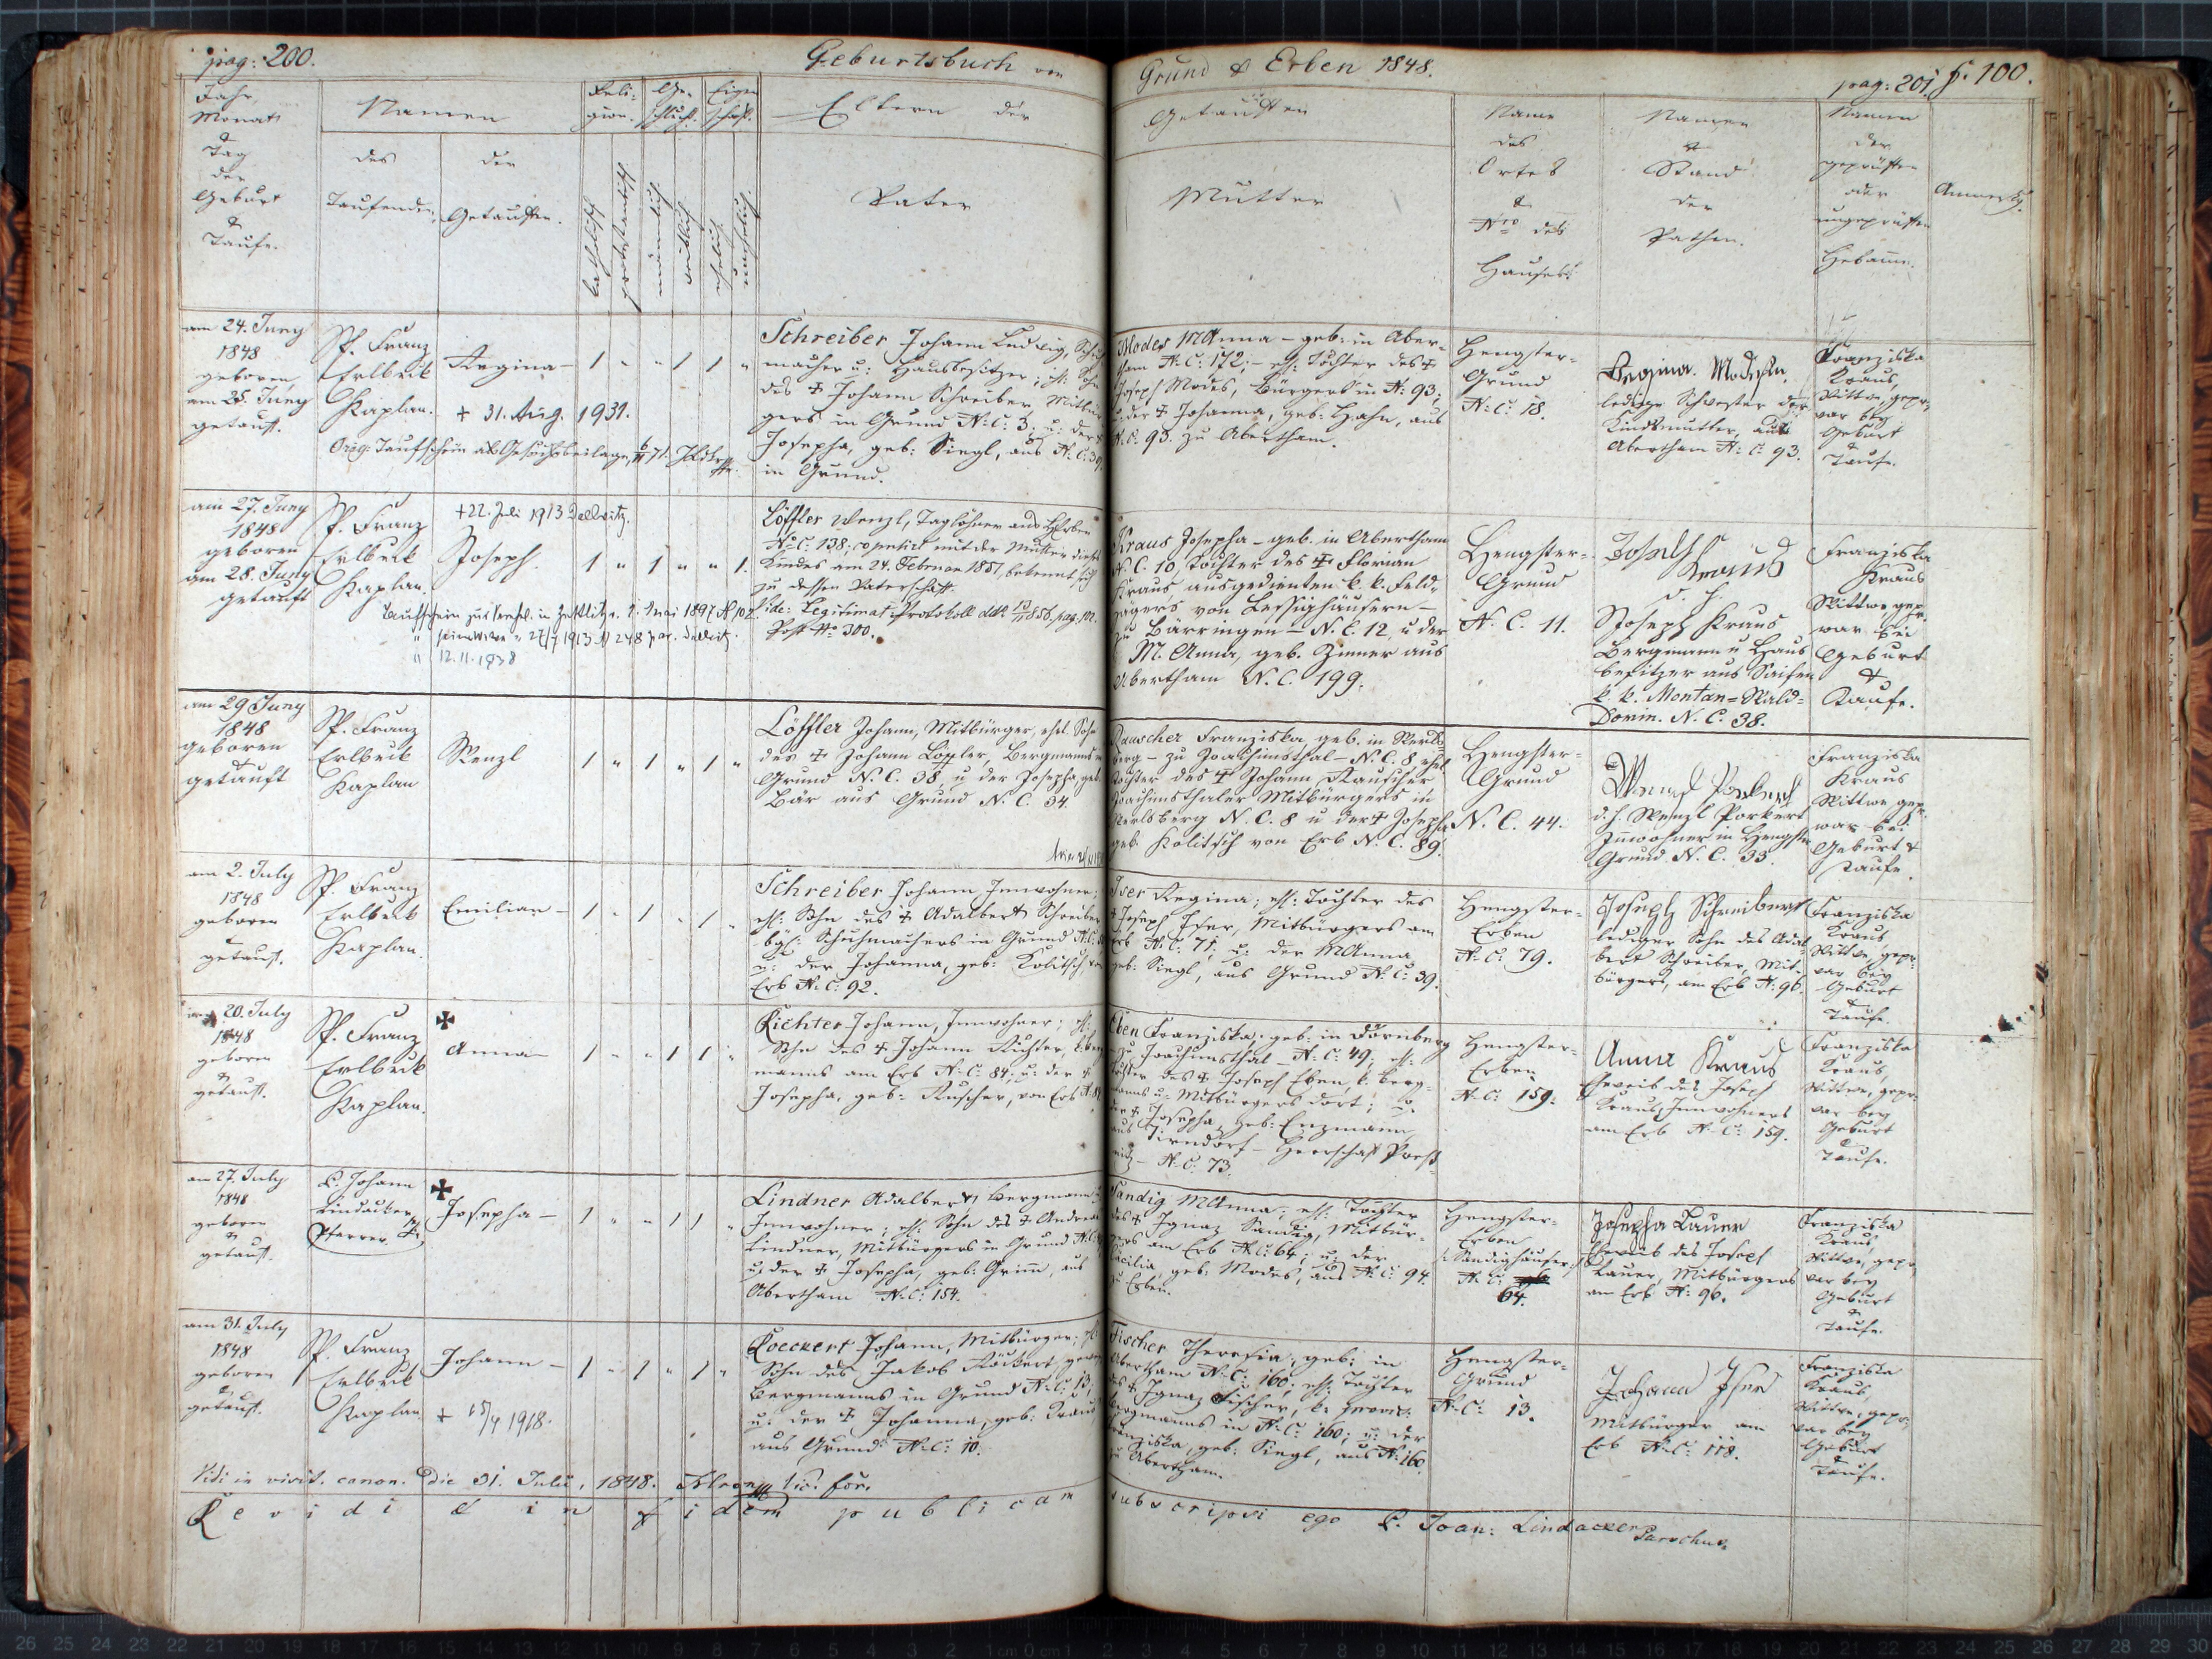 pag: 200.
Geburtsbuch von
Grund & Erben 1848.
pag: 201. f. 100.
Jahr,
Monat
&
Tag
der
Geburt
&
Taufe.
Namen
des
Taufenden.
der
Getauften.
Reli-
gion.
katholisch
protestantisch
Ge-
schlecht.
männlich
weiblich
Eigen
schaft.
ehelich
unehelich.
Eltern der
Getauften
Vater
Mutter
Name
des
Ortes
&
Nro des
Hauses
Namen
&
Stand
der
Pathen.
Namen
der
geprüften
oder
ungeprüften
Hebamme.
Anmerkg.
am 24. Juny
1848
geboren,
am 25. Juny
getauft.
P. Franz
Erlbek
Kaplan.
Regina —
+ 31. Aug. 1931.
Schreiber Johann Ludwig, Schuh
macher u: Hausbesitzer; eh: Sohn
des + Johann Schreiber Mitbür
gers in Grund N: C: 3; u: der +
Josepha, geb: Siegl, aus N: C: 39.
in Grund.
Modes MAnna – geb: in Aber-
tham N: C: 172; – eh: Tochter des +
Joseph Modes, Bürgers in N: 93;
u: der + Johanna, geb: Hahn, aus
N: C: 93. zu Abertham.
Hengster-
Grund
N: C: 18.
Regina. Modesin.
ledige Schwester der
Kindsmutter, aus
Abertham N: C: 93.
Franziska
Kraus,
Wittwe, gepr:
war bey
Geburt
&
Taufe.
Orig. Taufschein als Gesuchsbeilage,
am 27. Juny
1848
geboren
am 28. Juny
getauft
P. Franz
Erlbeck
Kaplan.
+ 22. Juli 1913 Dallwitz.
Joseph.
Löffler Wenzl, Taglöhner aus HErben
No C. 138; copulirt mit der Mutter dieses
Kindes am 24. Februar 1851, bekennt sich
zu dessen Vaterschaft.
Vide: Legitimat. Protokoll
Post No 300.
Kraus Josepha – geb. in Abertham
N. C. 10, Tochter des + Florian
Kraus ausgedienten k. k. Feld-
jägers von Lessighäusern –
zu Bärringen – N. C. 12, u der
M. Anna, geb. Zinner aus
Abertham N. C. 199.
Hengster-
Grund
N. C. 11.
Joseph
Kraus
d. h.
Joseph Kraus
Bergmann u Haus
besitzer aus Seifen
k. k. Montan-Wald-
Domin. N. C. 38.
Franziska
Kraus
Wittwe gepr.
war bei
Geburt
&
Taufe.
12. 11. 1938
am 29 Juny
1848
geboren
&
getauft
P. Franz
Erlbeck
Kaplan
Wenzl
Löffler Johann, Mitbürger, ehel. Sohn
des + Johann Löffler, Bergmanns in
Grund N. C. 38, u der Josepha, geb.
Bär aus Grund N. C. 34.
Rauscher Franziska, geb. in Werls-
berg – zu Joachimsthal – N. C. 8 ehel.
Tochter des + Johann Rauscher
Joachimsthaler Mitbürgers in
Werlsberg N. C. 8 u der + Josepha
geb. Kolitsch von Erb N. C. 89.
Hengster-
Grund
N. C. 44.
Wenzl Porkert
d. h. Wenzl Porkert
Innwohner in Hengster
Grund N. C. 33.
Franziska
Kraus
Wittwe gepr.
war bei
Geburt &
Taufe.
am 2. July
1848
geboren
&
getauft.
P. Franz
Erlbek
Kaplan.
Emilian —
Schreiber Johann, Innwohner;
eh: Sohn des + Adalbert Schreiber
bgl: Schuhmachers in Grund
u: der Johanna, geb: Kolitsch von
Erb N: C: 92.
Iser Regina; eh: Tochter des
+ Joseph Iser, Mitbürgers am
Erb N: C: 71; u: der MAnna
geb: Siegl, aus Grund N: C: 39.
Hengster-
Erben
N: C: 79.
Joseph Schreiber
lediger Sohn des Adal
bert Schreiber, Mit-
bürgers, am Erb N: 96.
Franziska
Kraus
Wittwe, gepr:
war bey
Geburt
&
Taufe.
am 20. July
1848
geboren
&
getauft.
P. Franz
Erlbek
Kaplan.
✠
Anna —
Richter Johann, Innwohner; eh:
Sohn des + Johann Richter, k: Berg
manns am Erb N: C: 84; u: der +
Josepha, geb: Ruscher, von Erb
Eben Franziska, geb: in Dörnberg
zu Joachimsthal – N: C: 49; eh:
Tochter des + Joseph Eben, k: Berg-
manns u: Mitbürgers dort; u:
der + Josepha, geb: Enzmann,
aus Tirndorf – Herrschaft
N: C: 73.
Hengster-
Erben
N: C: 159.
Anna Kraus
Eheweib des Joseph
Kraus, Innwohners
am Erb N: C: 159.
Franziska
Kraus,
Wittwe, gepr:
war bey
Geburt
&
Taufe.
am 27. July
1848
geboren
&
getauft.
P. Johann
Lindacker
Pfarrer
✠
Josepha —
Lindner Adalbert, Bergmann u:
Innwohner; eh: Sohn des + Andreas
Lindner, Mitbürgers in Grund
u: der + Josepha, geb: Grimm, aus
Abertham N: C: 154.
Sandig MAnna; eh: Tochter
des + Ignaz Sandig, Mitbür-
gers am Erb N: C: 64; u: der
Cäcilia geb: Modes, aus N: C: 94.
zu Erben.
Hengster-
Erben
Sandighäuser
N: C:
64.
Josepha Lauer
Eheweib des Joseph
Lauer, Mitbürgers
am Erb N: 96.
Franziska
Kraus,
Wittwe, gepr:
war bey
Geburt
&
Taufe.
am 31. July
1848
geboren
&
getauft.
P. Franz
Erlbek
Kaplan
Johann —
Roeckert Johann, Mitbürger; eh:
Sohn des Jakob Röckert,
Bergmanns in Grund N: C: 13;
u: der + Johanna, geb: Kraus
aus Grund N: C: 10.
Fischer Theresia, geb: in
Abertham N: C: 160; eh: Tochter
des + Ignaz Fischer, k: provis:
Bergmanns in N: C: 160; u: der
Franziska, geb: Siegl, aus N: 160.
zu Abertham.
Hengster-
Grund
N: C: 13.
Johann Iser
Mitbürger am
Erb N: C: 118.
Franziska
Kraus,
Wittwe, gepr:
war bey
Geburt
&
Taufe.
Vidi in visit. canon. die 31. Julii, 1848.
Revidi & in fidem publicam subscripsi ego P. Joan: Lindacker
Parochus.